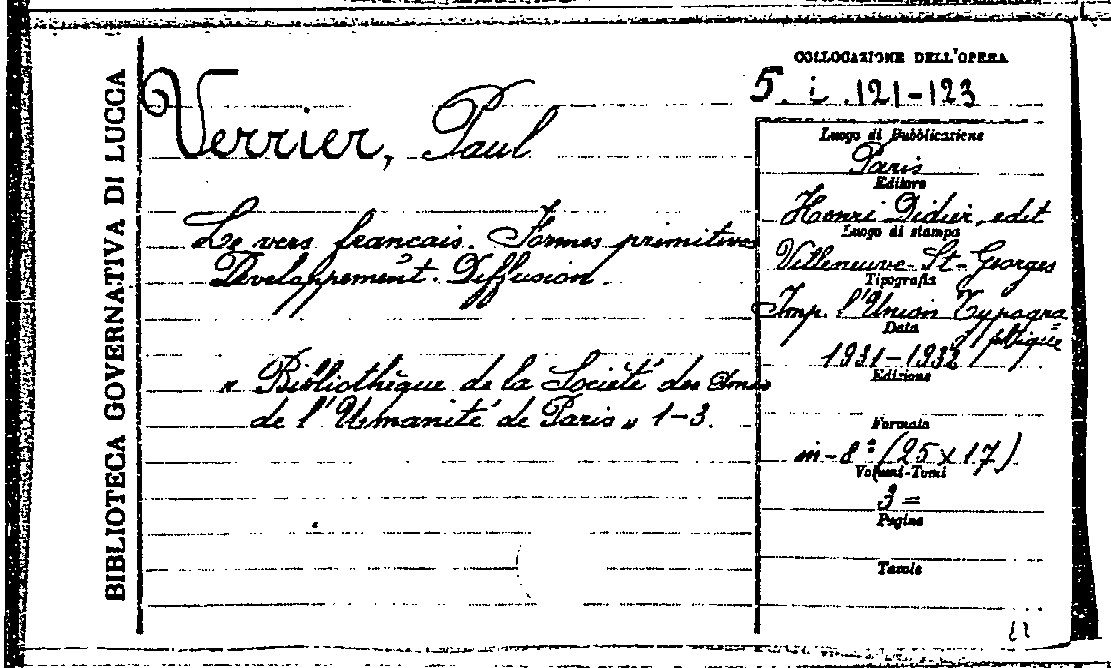 BIBLIOTECA GOVERNATIVA DI LUCCA
Verrier, Paul
Le vers français. Formes primitives
Développement. Diffusion.
« Bibliothèque de la Société des Amis
de l'Umanité de Paris » 1-3.
COLLOCAZIONE DELL'OPERA
5. i. 121-123
Luogo di Pubblicazione
Paris
Editore
Henri Didier, edit
Luogo di stampa
Villeneuve-St-Georges
Tipografia
Imp. l'Union Typogra
phique
Data
1931-1932
Edizione
Formato
in-8° (25 x 17)
Volumi-Tomi
3 =
Pagine
Tavole